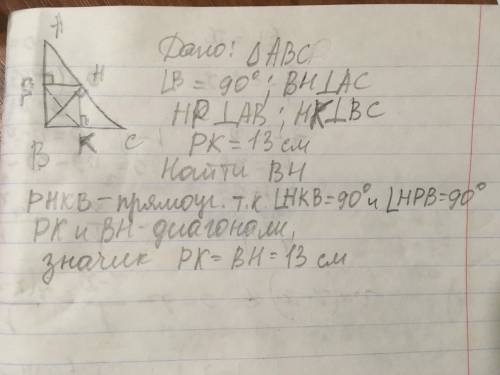 A
H
P
B
K
C
Дано: ΔABC
∠B = 90°; BH⊥AC
HP⊥AB; HK⊥BC
PK = 13 см
Найти BH
PHKB – прямоуг. т.к ∠HKB=90° и ∠HPB=90°
PK и BH – диагонали,
значик PK = BH = 13 см